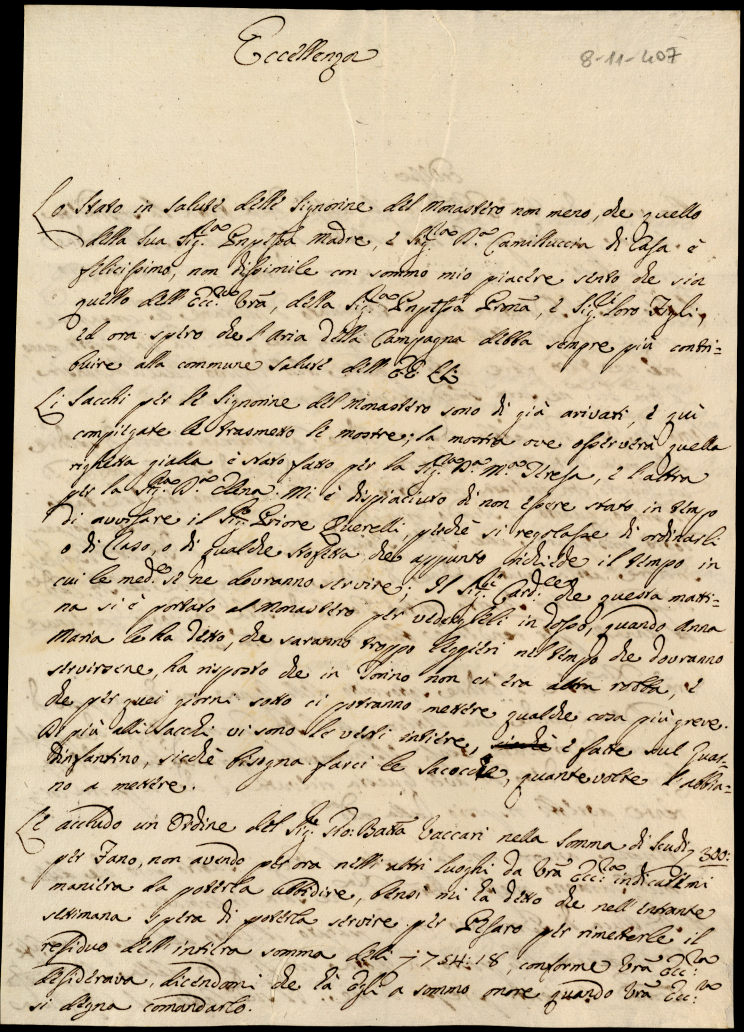 Eccellenza
8-11-407
Lo stato in salute delle Signorine del Monastero non meno, che quello
della sua Sig.ra Madre, e Sig.ra D.a Camilluccia di Casa è
felicissimo, non dissimile con sommo mio piacere sento che sia
quello dell'Ecc.za Vrã, della Sig.ra e Sig.ri loro Figli,
ed ora spero che l'Aria della Campagna debba sempre più contri=
buire alla commune salute dell'EE. LL.
Li Sacchi per le Signorine del Monastero sono di già arivati, e quì
compiegate le trasmetto le mostre; la mostra ove osserverà quella
righetta gialla è stato fatto per la Sig.ra D.a M.a Teresa, e l'altra
per la Sig.ra D.a Elena. Mi è dispiaciuto di non essere stato in tempo
di avvisare il Sig.r Priore Querelli perchè si regolasse di ordinarli
o di Raso, o di qualche stoffetta che appunto richiede il tempo in
cui le med.e se ne dovranno servire; Il Sig.r Card.le che questa matti=
na si è portato al Monastero per vederglieli in dosso, quando Anna
Maria le ha detto, che saranno troppo leggieri nel tempo che dovranno
servirsene, ha risposto che in Torino non ci era altra robba, e
che per quei giorni sotto ci potranno mettere qualche cosa più greve.
Di più alli Sacchi vi sono le vesti intiere, sicchè e fatte sul Guar=
dinfantino, sicchè bisogna farci le saccoccie, quante volte l'abbia=
no a mettere.
Le accludo un Ordine del Sig.r Gio: Batta Vaccari nella somma di scudi 300:
per Fano, non avendo per ora nelli altri luoghi da Vrã Ecc.za indicatemi
maniera da poterla ubbidire, bensì mi hà detto che nell'entrante
settimana spera di poterla servire per Pesaro per rimetterle il
residuo dell'intiera somma delli 754:18, conforme Vrã Ecc.za
desiderava, dicendomi che hà egli a sommo onore quando Vrã Ecc.za
si degna comandarlo.